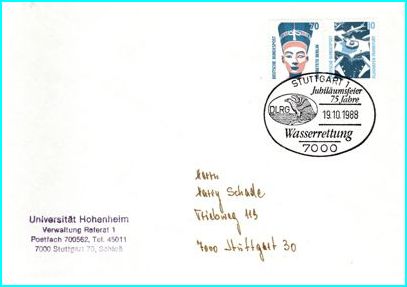 70
10
DEUTSCHE BUNDESPOST
NOFRETETE BERLIN
DEUTSCHE BUNDESPOST
STUTTGART 1
Jubiläumsfeier
75 Jahre
DLRG
19.10.1988
Wasserrettung
7000
Herrn
Harry Schade
Triebweg 113
7000 Stuttgart 30
Universität Hohenheim
Verwaltung Referat 1
Postfach 700562, Tel. 45011
7000 Stuttgart 70, Schloß